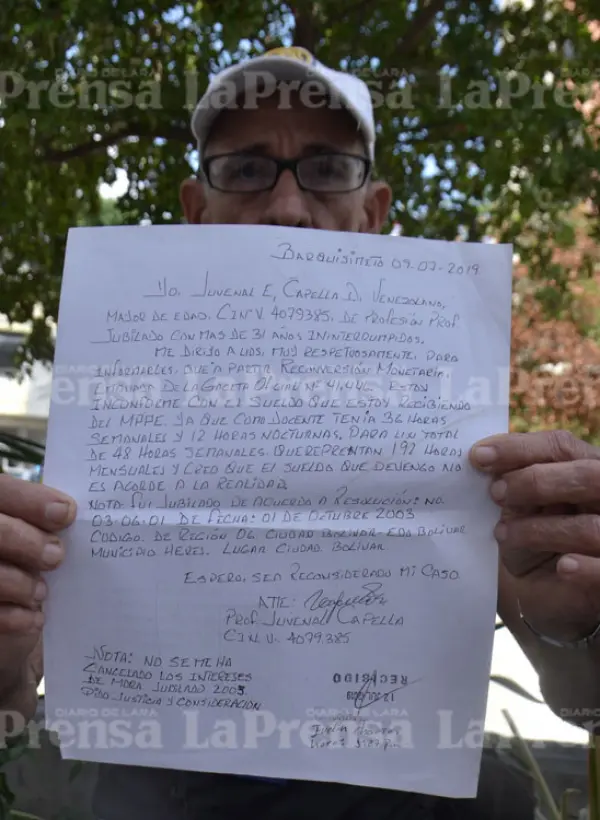 DIARIO DE LARA
LaPrensa LaPrensa
BARQUISIMETO 09-07-2019
YO, JUVENAL E, CAPELLA D. VENEZOLANO,
MAJOR DE EDAD. C.I Nº V 4079385, DE PROFESIÓN PROF.
JUBILADO CON MAS DE 31 AÑOS ININTERRUMPIDOS.
ME DIRIJO A UDS, MUY RESPETUOSAMENTE, PARA
INFORMARLES, QUE A PARTIR RECONVERSIÓN MONETARIA,
DE LA GACETA OFICIAL Nº 41.446 ESTOY
INCONFORME CON EL SUELDO QUE ESTOY RECIBIENDO
DEL MPPE. YA QUE COMO DOCENTE TENIA 36 HORAS
SEMANALES Y 12 HORAS NOCTURNAS, PARA UN TOTAL
DE 48 HORAS SEMANALES. QUE REPRENTAN 192 HORAS
MENSUALES Y CREO QUE EL SUELDO QUE DEVENGO NO
ES ACORDE A LA REALIDAD.
NOTA: FUI JUBILADO DE ACUERDO A RESOLUCIÓN: NO.
03-06-01 DE FECHA: 01 DE OCTUBRE 2003
CODIGO. DE REGIÓN 06 CIUDAD BOLIVAR - EDO BOLÍVAR
MUNICIPIO HERES. LUGAR CIUDAD BOLIVAR
ESPERO, SEA RECONSIDERADO MI CASO
ATTE:
PROF. JUVENAL CAPELLA
C.I Nº V. 4079385
NOTA: NO SE ME HA
CANCELADO LOS INTERESES
DE MORA JUBILADO 2003
PIDO JUSTICIA Y CONSIDERACIÓN
RECIBIDO
12 JUL 2019
DIARIO DE LARA
LaPrensa LaPrensa